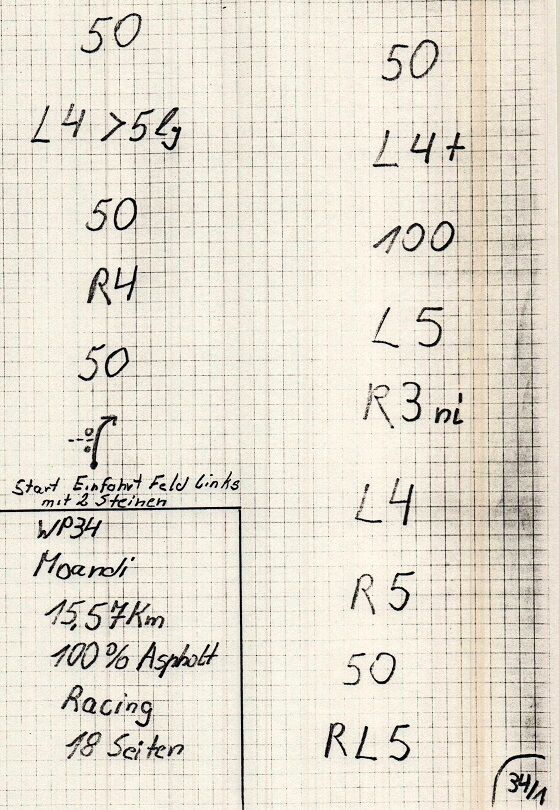 50
L4 >5lg
50
R4
50
Start Einfahrt Feld links
mit 2 Steinen
WP34
Moandi
15,57Km
100% Asphalt
Racing
18 Seiten
50
L4+
100
L5
R3 ni
L4
R5
50
RL5
34/1